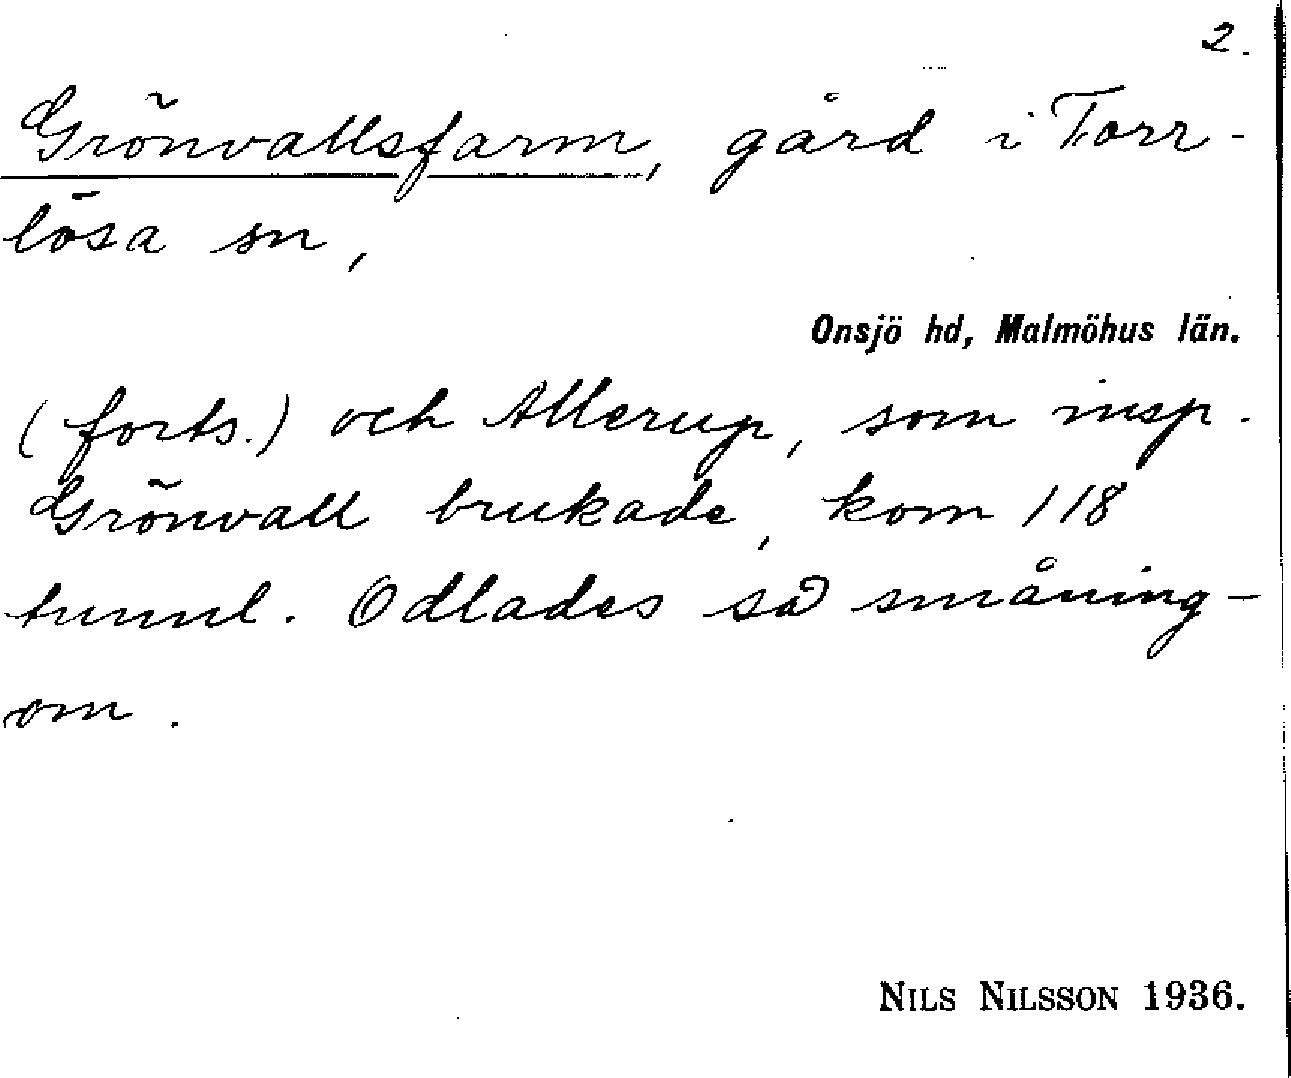 2.
Grönvallsfarm, gård i Torr-
lösa sn,
Onsjö hd, Malmöhus län.
(forts.) och Allerup, som insp.
Grönvall brukade, kom 118
tunnl. Odlades så småning-
om.
NILS NILSSON 1936.